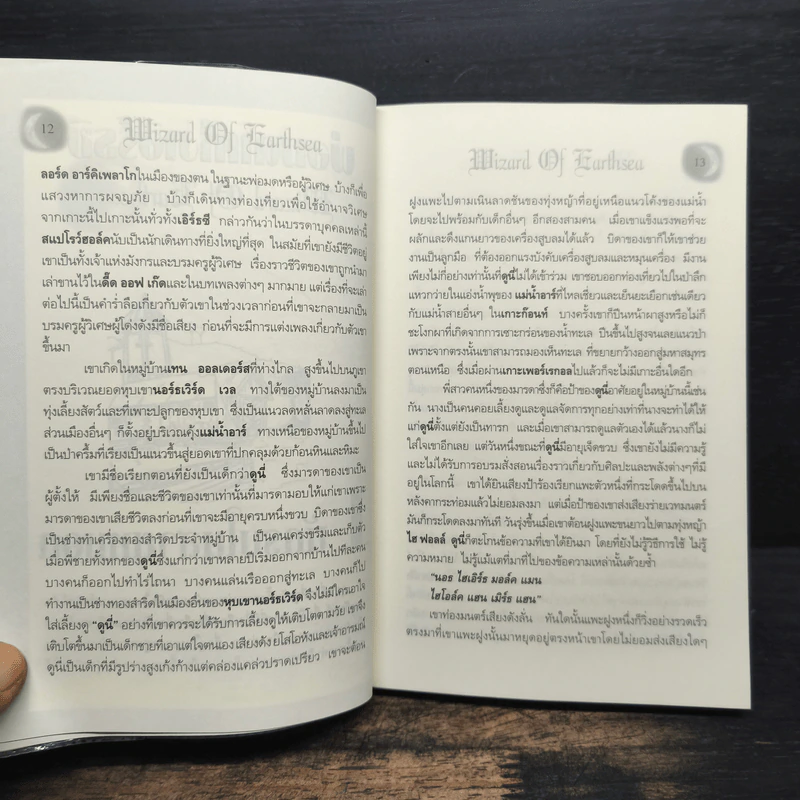 12
Wizard Of Earthsea
ลอร์ด อาร์คิเพลาโกในเมืองของตน ในฐานะพ่อมดหรือผู้วิเศษ บ้างก็เพื่อ
แสวงหาการผจญภัย บ้างก็เดินทางท่องเที่ยวเพื่อใช้อำนาจวิเศษ
จากเกาะนี้ไปเกาะนั้นทั่วทั้งเอิร์ธซี กล่าวกันว่าในบรรดาบุคคลเหล่านี้
สแปโรว์ฮอล์คนับเป็นนักเดินทางที่ยิ่งใหญ่ที่สุด ในสมัยที่เขายังมีชีวิตอยู่
เขาเป็นทั้งเจ้าแห่งมังกรและบรมครูผู้วิเศษ เรื่องราวชีวิตของเขาถูกนำมา
เล่าขานไว้ในดี๊ด ออฟ เก๊ดและในบทเพลงต่างๆ มากมาย แต่เรื่องที่จะเล่า
ต่อไปนี้เป็นคำร่ำลือเกี่ยวกับตัวเขาในช่วงเวลาก่อนที่เขาจะกลายมาเป็น
บรมครูผู้วิเศษผู้โด่งดังมีชื่อเสียง ก่อนที่จะมีการแต่งเพลงเกี่ยวกับตัวเขา
ขึ้นมา
เขาเกิดในหมู่บ้านเทน ออลเดอร์สที่ห่างไกล สูงขึ้นไปบนภูเขา
ตรงบริเวณยอดหุบเขานอร์ธเวิร์ด เวล ทางใต้ของหมู่บ้านลงมาเป็น
ทุ่งเลี้ยงสัตว์และที่เพาะปลูกของหุบเขา ซึ่งเป็นแนวลดหลั่นลาดลงสู่ทะเล
ส่วนเมืองอื่นๆ ก็ตั้งอยู่บริเวณคุ้งแม่น้ำอาร์ ทางเหนือของหมู่บ้านขึ้นไป
เป็นป่าครึ้มที่เรียงเป็นแนวขึ้นสู่ยอดเขาที่ปกคลุมด้วยก้อนหินและหิมะ
เขามีชื่อเรียกตอนที่ยังเป็นเด็กว่าดูนี่ ซึ่งมารดาของเขาเป็น
ผู้ตั้งให้ มีเพียงชื่อและชีวิตของเขาเท่านั้นที่มารดามอบให้แก่เขาเพราะ
มารดาของเขาเสียชีวิตลงก่อนที่เขาจะมีอายุครบหนึ่งขวบ บิดาของเขาซึ่ง
เป็นช่างทำเครื่องทองสำริดประจำหมู่บ้าน เป็นคนเคร่งขรึมและเก็บตัว
เมื่อพี่ชายทั้งหกของดูนี่ซึ่งแก่กว่าเขาหลายปีเริ่มออกจากบ้านไปทีละคน
บางคนก็ออกไปทำไร่ไถนา บางคนแล่นเรือออกสู่ทะเล บางคนก็ไป
ทำงานเป็นช่างทองสำริดในเมืองอื่นของหุบเขานอร์ธเวิร์ด จึงไม่มีใครเอาใจ
ใส่เลี้ยงดู “ดูนี่” อย่างที่เขาควรจะได้รับการเลี้ยงดูให้เติบโตตามวัย เขาจึง
เติบโตขึ้นมาเป็นเด็กชายที่เอาแต่ใจตนเอง เสียงดัง ยโสโอหังและเจ้าอารมณ์
ดูนี่เป็นเด็กที่มีรูปร่างสูงเก้งก้างแต่คล่องแคล่วปราดเปรียว เขาจะต้อน
Wizard Of Earthsea
13
ฝูงแพะไปตามเนินลาดชันของทุ่งหญ้าที่อยู่เหนือแนวโค้งของแม่น้ำ
โดยจะไปพร้อมกับเด็กอื่นๆ อีกสองสามคน เมื่อเขาแข็งแรงพอที่จะ
ผลักและดึงแกนยาวของเครื่องสูบลมได้แล้ว บิดาของเขาก็ให้เขาช่วย
งานเป็นลูกมือ ที่ต้องออกแรงบังคับเครื่องสูบลมและหมุนเครื่อง มีงาน
เพียงไม่กี่อย่างเท่านั้นที่ดูนี่ไม่ได้เข้าร่วม เขาชอบออกท่องเที่ยวไปในป่าลึก
แหวกว่ายในแอ่งน้ำพุของ แม่น้ำอาร์ที่ไหลเชี่ยวและเย็นยะเยือกเช่นเดียว
กับแม่น้ำสายอื่นๆ ในเกาะก๊อนท์ บางครั้งเขาก็ปีนหน้าผาสูงหรือไม่ก็
ชะโงกผาที่เกิดจากการเซาะกร่อนของน้ำทะเล ปีนขึ้นไปสูงจนเลยแนวป่า
เพราะจากตรงนั้นเขาสามารถมองเห็นทะเล ที่ขยายกว้างออกสู่มหาสมุทร
ตอนเหนือ ซึ่งเมื่อผ่านเกาะเพอร์เรกอลไปแล้วก็จะไม่มีเกาะอื่นใดอีก
พี่สาวคนหนึ่งของมารดาซึ่งก็คือป้าของดูนี่อาศัยอยู่ในหมู่บ้านนี้เช่น
กัน นางเป็นคนคอยเลี้ยงดูและดูแลจัดการทุกอย่างเท่าที่นางจะทำได้ให้
แก่ดูนี่ตั้งแต่ยังเป็นทารก และเมื่อเขาสามารถดูแลตัวเองได้แล้วนางก็ไม่
ใส่ใจเขาอีกเลย แต่วันหนึ่งขณะที่ดูนี่มีอายุเจ็ดขวบ ซึ่งเขายังไม่มีความรู้
และไม่ได้รับการอบรมสั่งสอนเรื่องราวเกี่ยวกับศิลปะและพลังต่างๆที่มี
อยู่ในโลกนี้ เขาได้ยินเสียงป้าร้องเรียกแพะตัวหนึ่งที่กระโดดขึ้นไปบน
หลังคากระท่อมแล้วไม่ยอมลงมา แต่เมื่อป้าของเขาส่งเสียงร่ายเวทมนตร์
มันก็กระโดดลงมาทันที วันรุ่งขึ้นเมื่อเขาต้อนฝูงแพะขนยาวไปตามทุ่งหญ้า
ไฮ ฟอลล์ ดูนี่ก็ตะโกนข้อความที่เขาได้ยินมา โดยที่ยังไม่รู้วิธีการใช้ ไม่รู้
ความหมาย ไม่รู้แม้แต่ที่มาที่ไปของข้อความเหล่านั้นด้วยซ้ำ
“นอธ ไฮเอิร์ธ มอล์ค แมน
ไฮโอล์ค แฮน เมิร์ธ แฮน”
เขาท่องมนตร์เสียงดังลั่น ทันใดนั้นแพะฝูงหนึ่งก็วิ่งอย่างรวดเร็ว
ตรงมาที่เขาแพะฝูงนั้นมาหยุดอยู่ตรงหน้าเขาโดยไม่ยอมส่งเสียงใดๆ